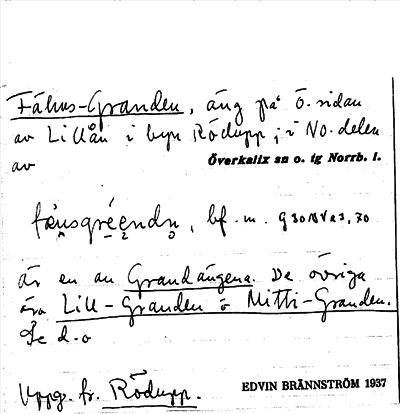 Fähus-Granden, äng på Ö. sidan
av Lillån i byn Rödupp, i NO. delen
av Överkalix sn o. tg Norrb. l.
bf. m.
är en av Grandängena. De övriga
äro Lill-Granden o Mitti-Granden.
Se d. o
Uppg. fr. Rödupp. EDVIN BRÄNNSTRÖM 1937